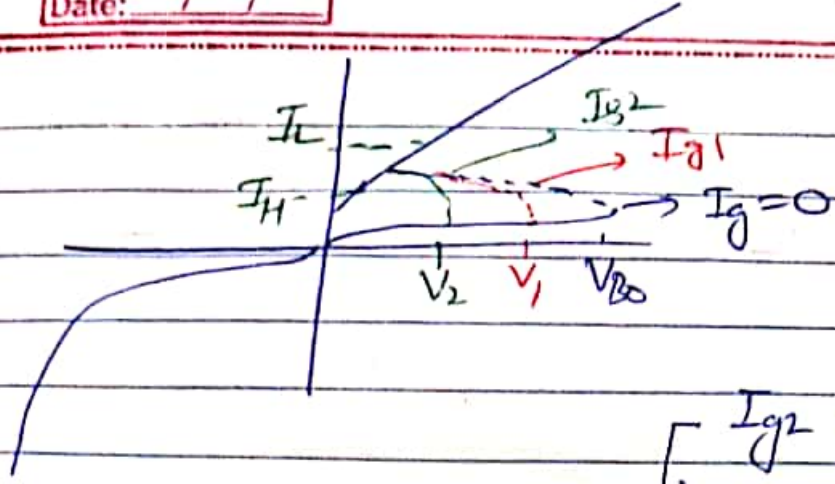 Date: / /
I_L
I_g2
I_g1
I_H
I_g = 0
V_2 V_1 V_BO
I_g2